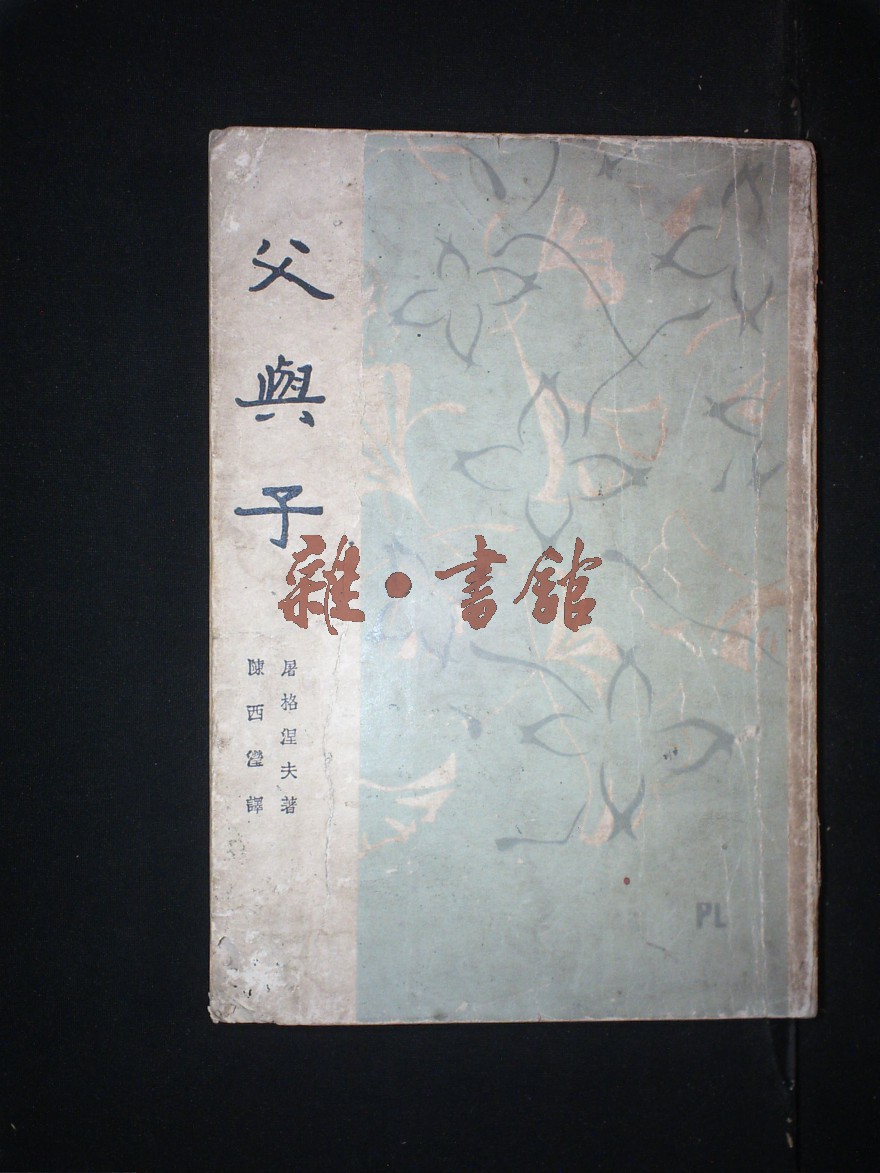 父與子
屠格涅夫著
陳西瀅譯
雜·書舘
PL